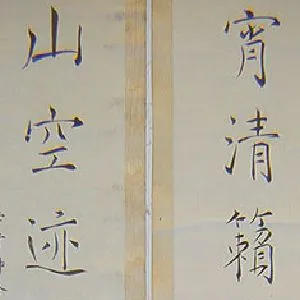 宵清籟
山空迹